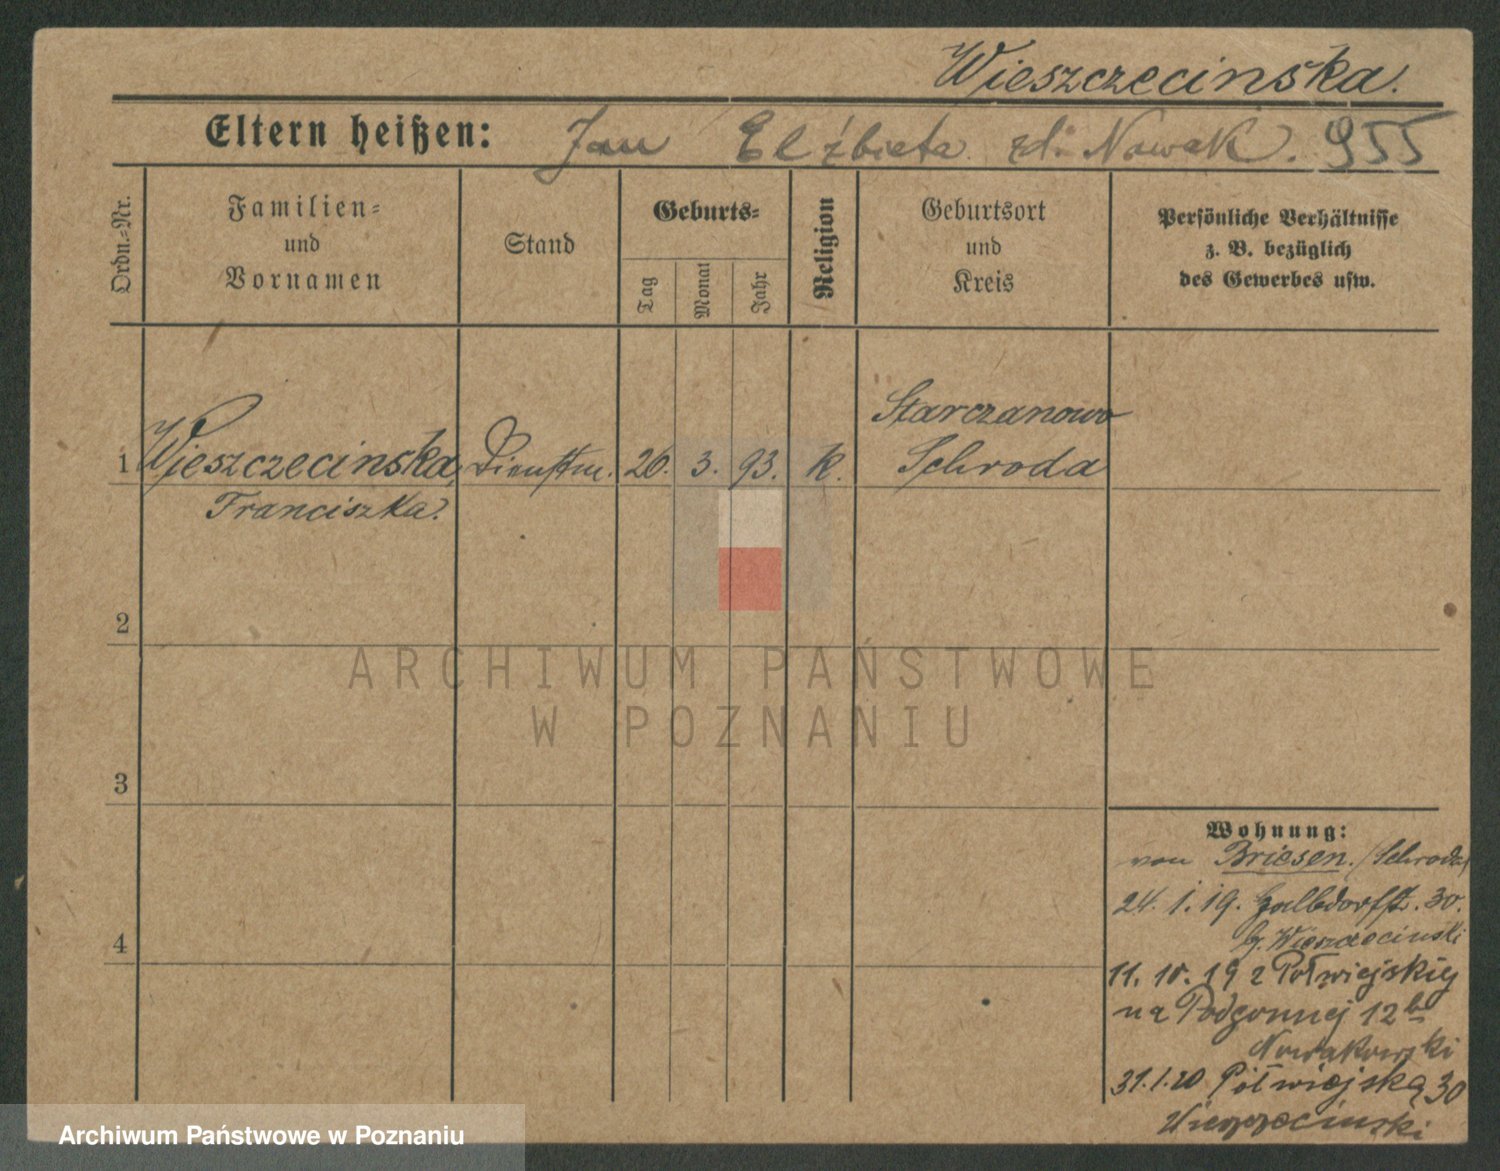 Wieszczecinska.
Eltern heißen: Jan Elżbieta zd. Nowak. 955
Ordn.-Nr.
Familien-
und
Vornamen
Stand
Geburts-
Tag
Monat
Jahr
Religion
Geburtsort
und
Kreis
Persönliche Verhältnisse
z. B. bezüglich
des Gewerbes usw.
Starczanowo
1 Wieszczecinska, Dienstm. 26. 3. 93. k. Schroda
Franciszka.
2
ARCHIWUM PAŃSTWOWE
W POZNANIU
3
Wohnung:
von Briesen. (Schroda)
24. 1. 19. Halbdorfstr. 30.
b. Wieszczecinski
4
11. 10. 19 z Półwiejskiej
na Podgornej 12
Nowakowski
31.1.20 Półwiejska 30
Wieszczecinski
Archiwum Państwowe w Poznaniu